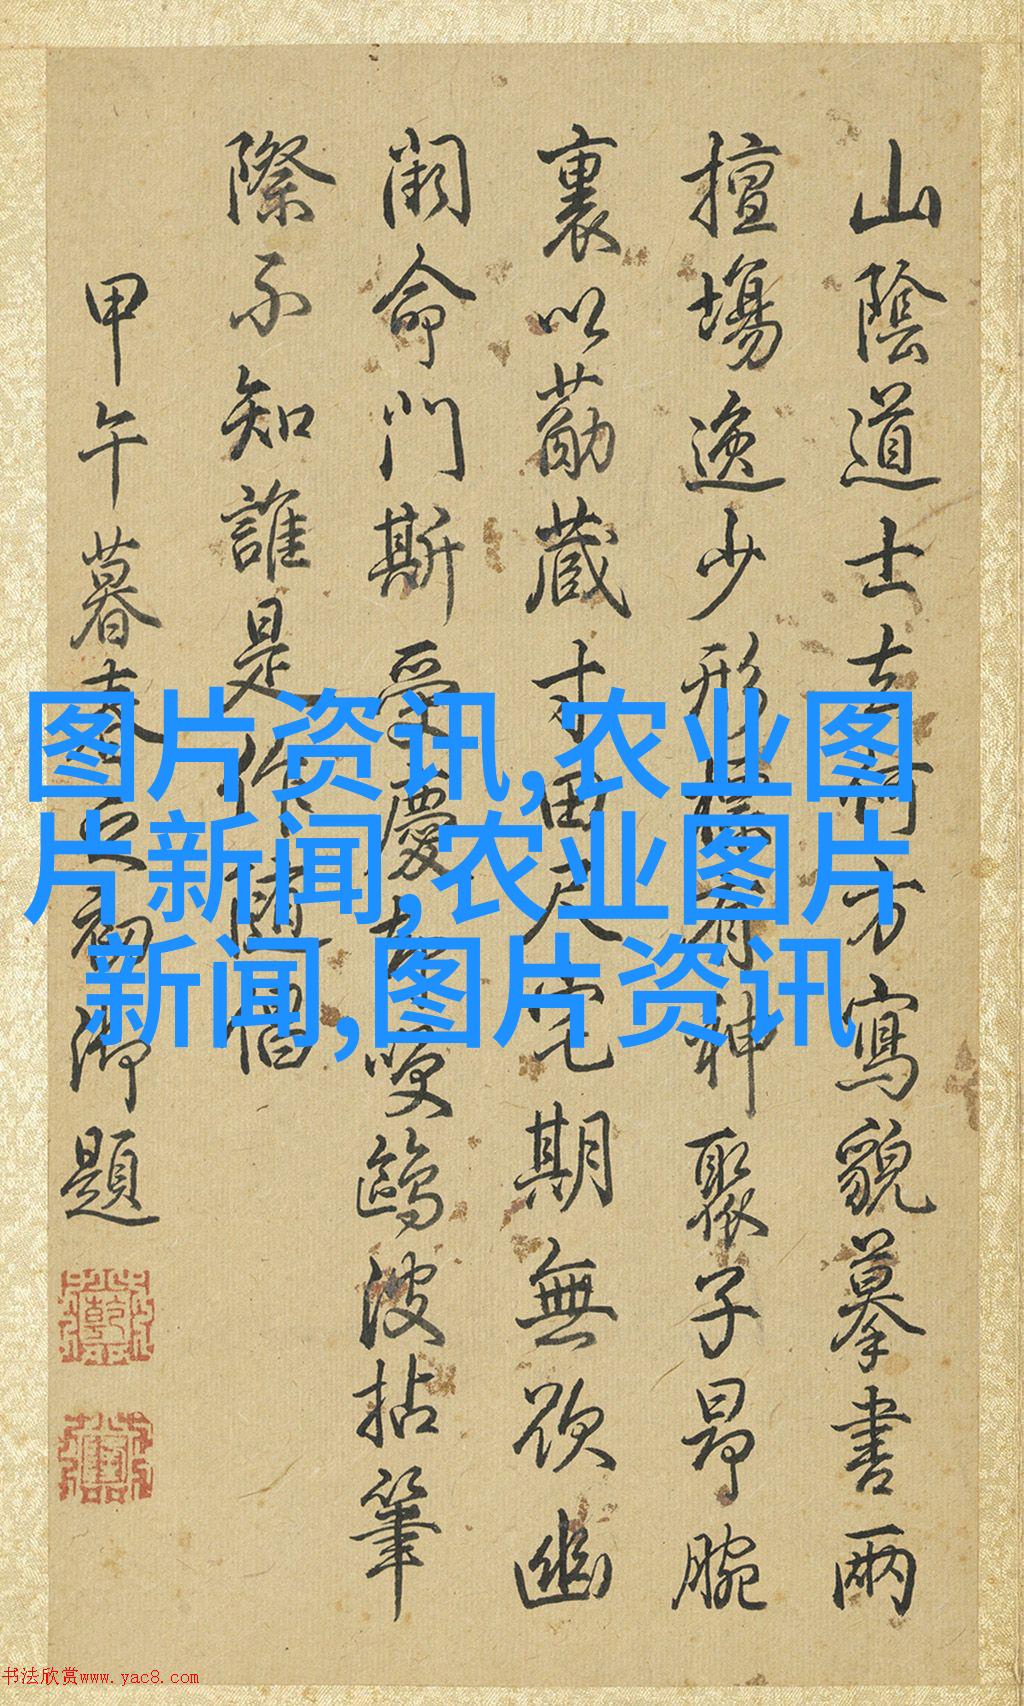 山陰道士何方寫貌摹書兩
擅場逸少形神聚子昂腕
裏以勗藏寸田尺宅期無欲幽
闕命門斯受慶鷗波拈筆
際不知誰是
甲午暮春之初御題
图片资讯,农业图
片新闻,农业图片
新闻,图片资讯
书法欣赏www.yac8.com